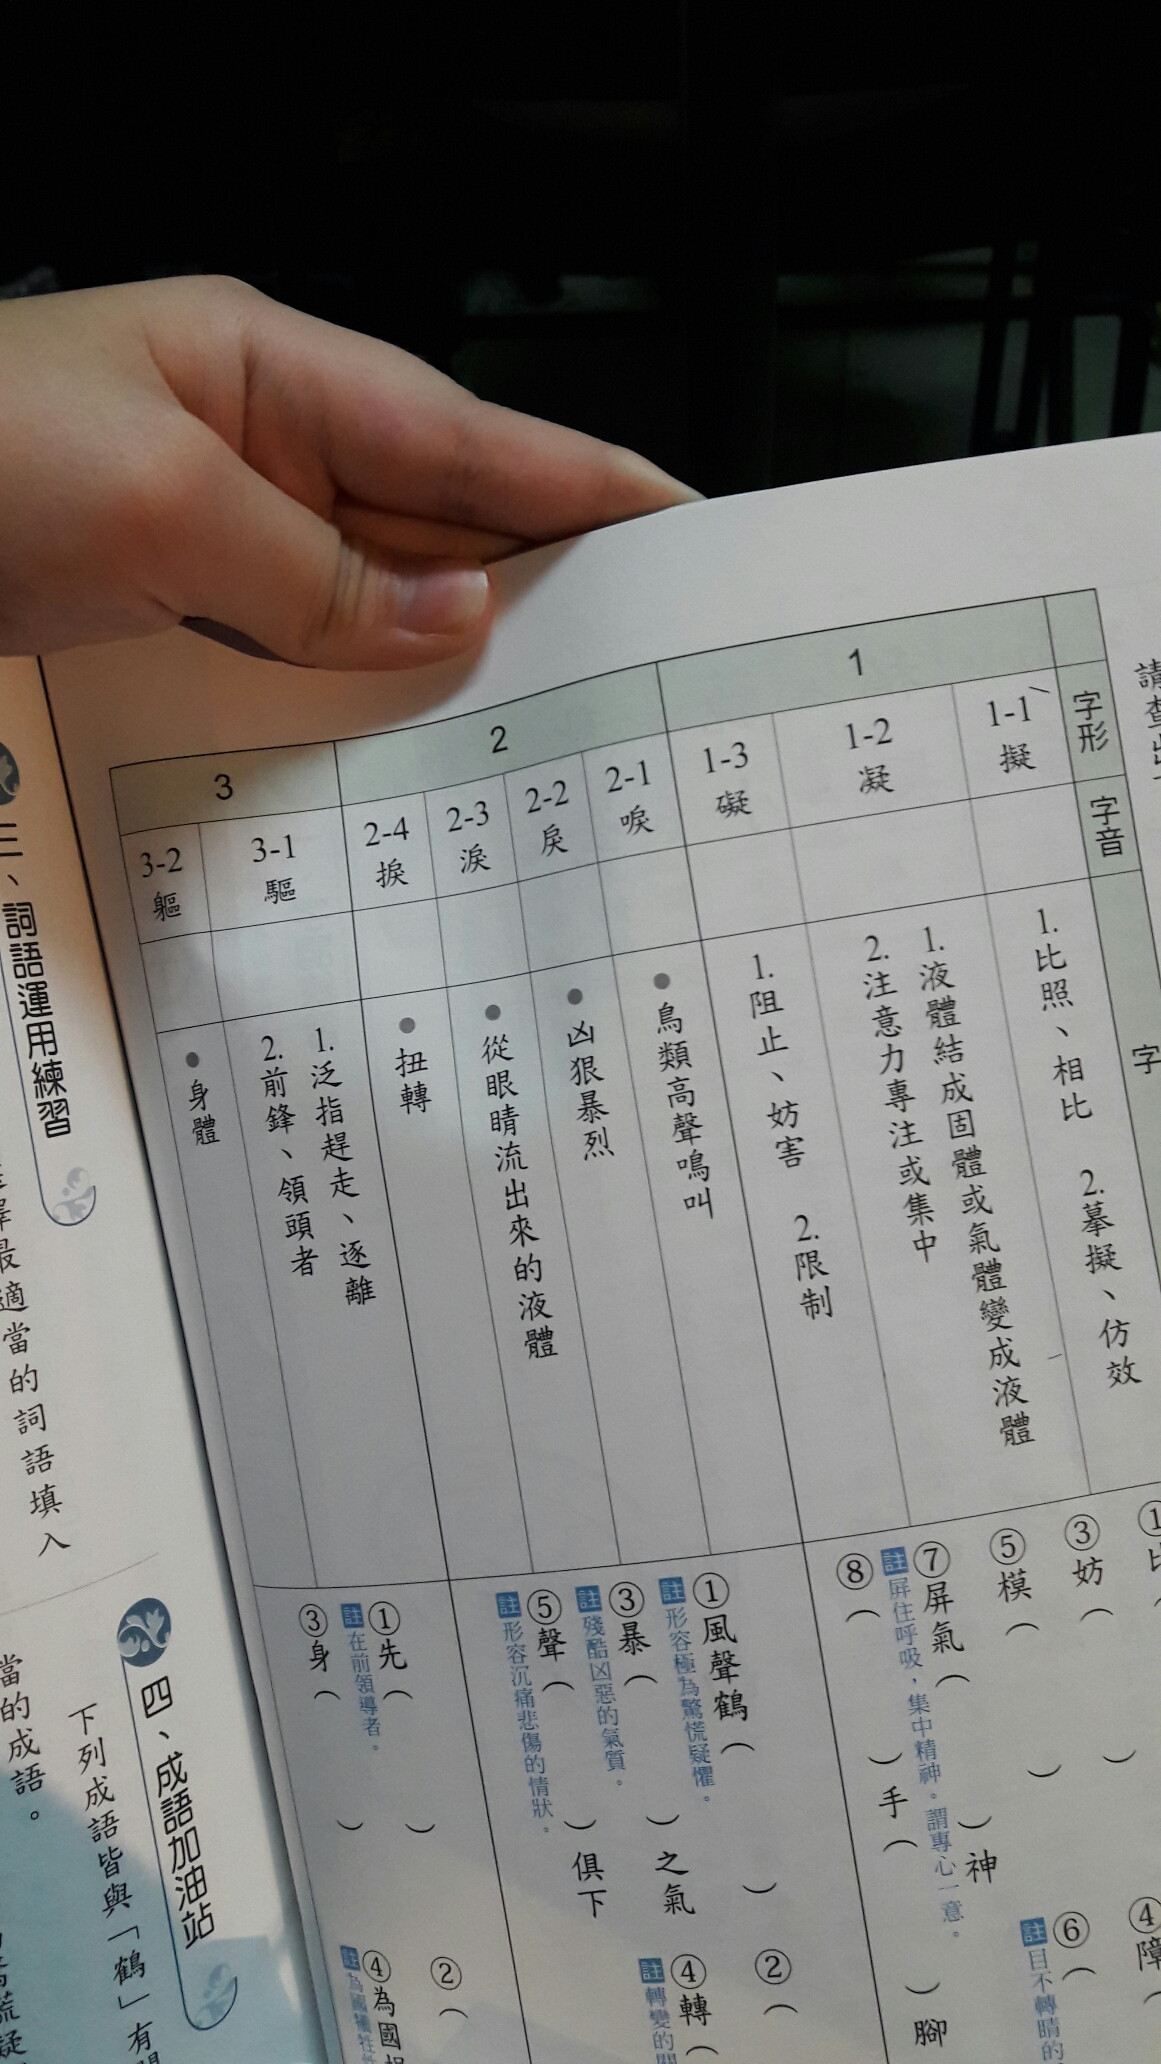 請查出
字形
字音
字
1
1-1
擬
1.比照、相比 2.摹擬、仿效
1-2
凝
1.液體結成固體或氣體變成液體
2.注意力專注或集中
1-3
礙
1.阻止、妨害 2.限制
2
2-1
唳
●鳥類高聲鳴叫
2-2
戾
●凶狠暴烈
2-3
淚
●從眼睛流出來的液體
2-4
捩
●扭轉
3
3-1
驅
1.泛指趕走、逐離
2.前鋒、領頭者
3-2
軀
●身體
①比(
③妨( )
④障(
⑤模( )
⑥(
註目不轉睛的
⑦屏氣( )神
註屏住呼吸，集中精神。謂專心一意。
⑧( )手( )腳
①風聲鶴( )
註形容極為驚慌疑懼。
②(
③暴( )之氣
註殘酷凶惡的氣質。
④轉(
註轉變的關
⑤聲( )俱下
註形容沉痛悲傷的情狀。
①先( )
註在前領導者。
②(
③身( )
④為國捐
註為國犧牲
三、詞語運用練習
擇最適當的詞語填入
當的成語。
四、成語加油站
下列成語皆與「鶴」有關